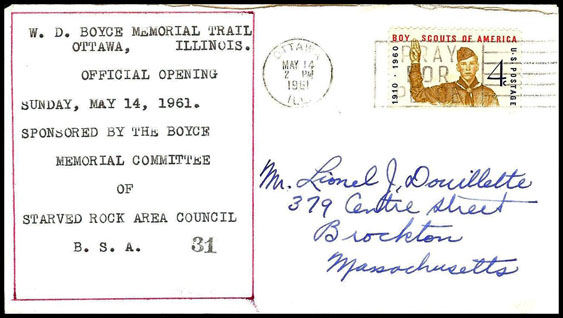 W. D. BOYCE MEMORIAL TRAIL
OTTAWA, ILLINOIS.
OFFICIAL OPENING
SUNDAY, MAY 14, 1961.
SPONSORED BY THE BOYCE
MEMORIAL COMMITTEE
OF
STARVED ROCK AREA COUNCIL
B. S. A. 31
OTTAWA
MAY 14
2 PM
1961
ILL.
BOY SCOUTS OF AMERICA
1910 · 1960
4¢
U.S. POSTAGE
PRAY
FOR
Mr. Lionel J. Douillette
379 Centre Street
Brockton
Massachusetts